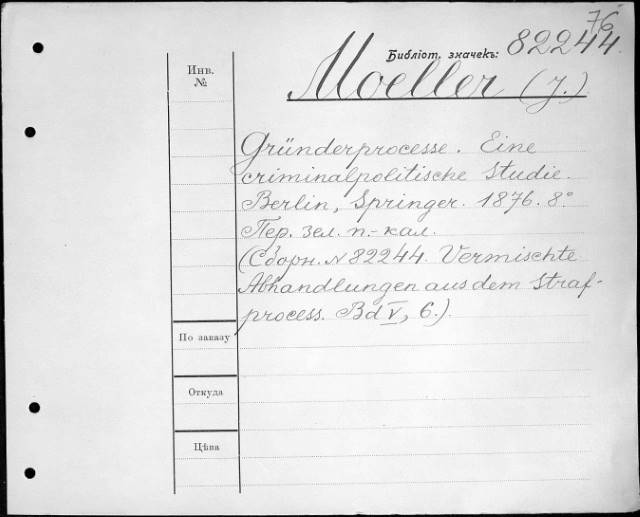 76
Библіот. значекъ: 82244.
Инв.
№
Moeller (J.)
Gründerprocesse. Eine
criminalpolitische Studie.
Berlin, Springer. 1876. 8°
Пер. зел. п.-кал.
(Сборн. № 82244. Vermischte
Abhandlungen aus dem Straf-
process. Bd V, 6.).
По заказу
Откуда
Цѣна